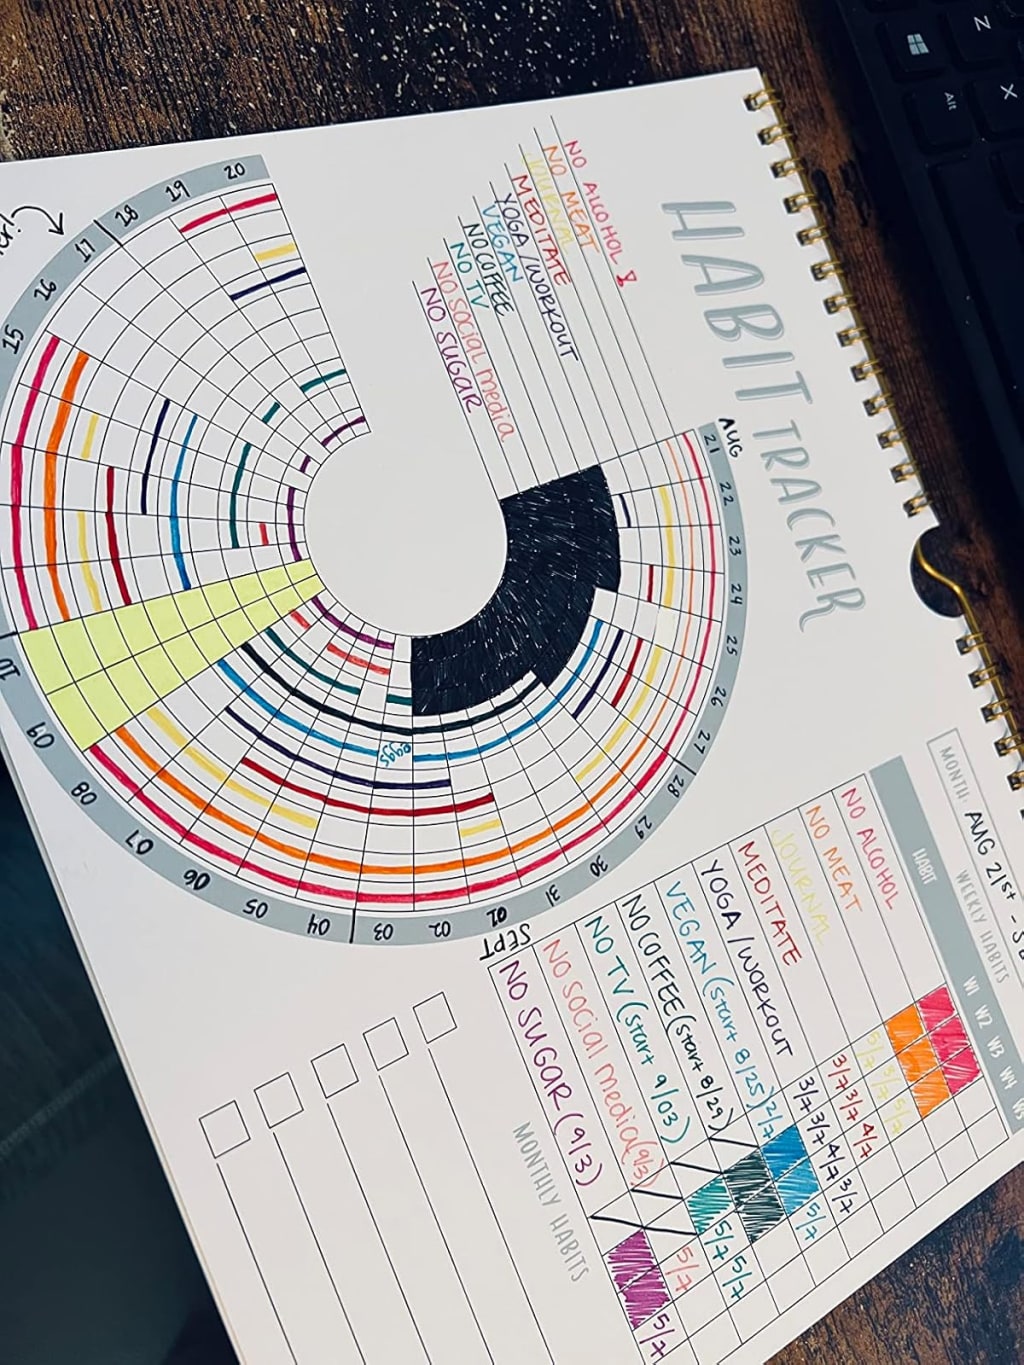 HABIT TRACKER
NO ALCOHOL
NO MEAT
JOURNAL
MEDITATE
YOGA/WORKOUT
VEGAN
NO COFFEE
NO TV
NO social media
NO SUGAR
AUG
21
22
23
24
25
26
27
28
29
30
31
SEPT
01
02
03
04
05
06
07
08
09
10
15
16
17
18
19
20
eggs
MONTH: AUG 21st -
WEEKLY HABITS
HABIT W1 W2 W3 W4 W5
NO ALCOHOL
NO MEAT
JOURNAL 5/7 3/7 5/7
MEDITATE 3/7 3/7 4/7
YOGA/WORKOUT 3/7 3/7 4/7 3/7
VEGAN (start 8/25) 2/7 5/7
NO COFFEE (start 8/29)
NO TV (start 9/03) 5/7 5/7
NO social media (9/3) 5/7
NO SUGAR (9/3) 5/7
MONTHLY HABITS
Alt
Z
X